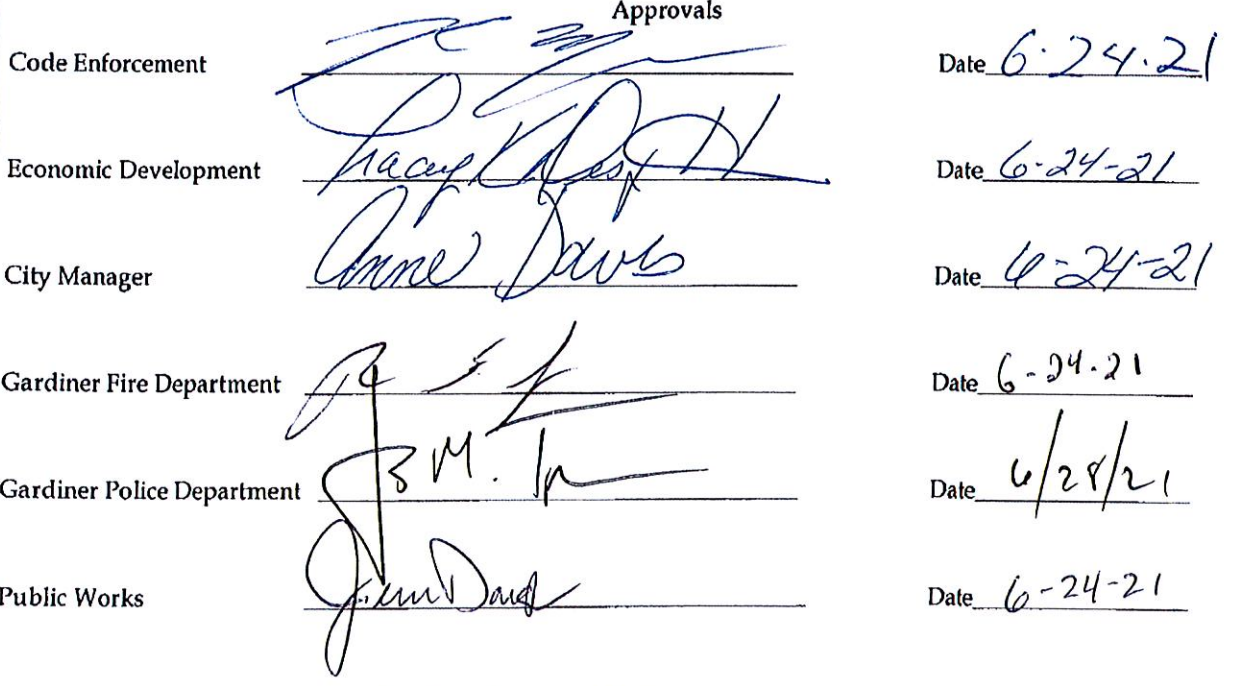 Approvals
Code Enforcement Date 6.24.21
Economic Development Tracey Date 6-24-21
City Manager Anne Davis Date 6-24-21
Gardiner Fire Department Date 6-24-21
Gardiner Police Department M. Date 6/28/21
Public Works Date 6-24-21